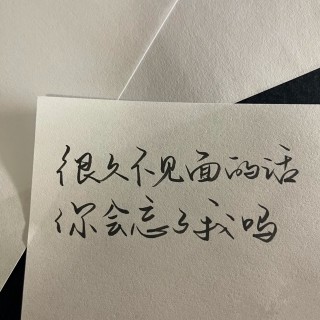 很久不见面的话
你会忘了我吗